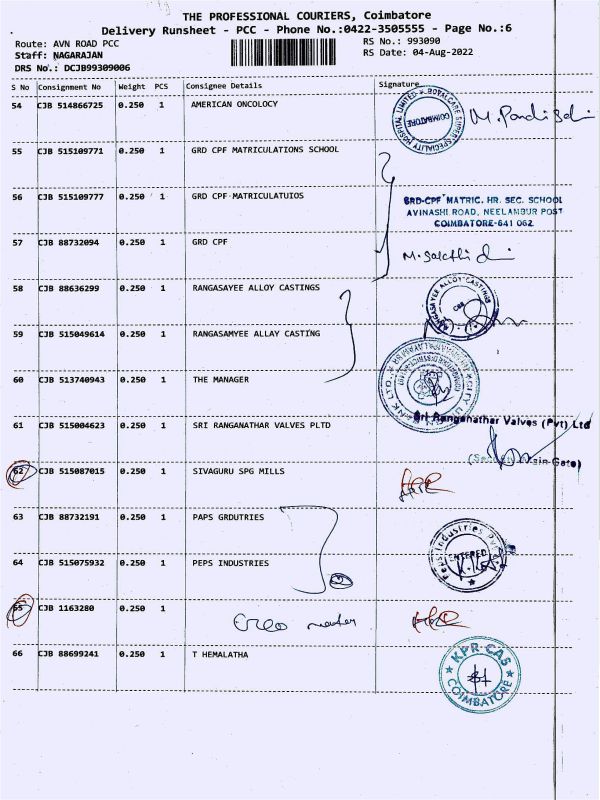 THE PROFESSIONAL COURIERS, Coimbatore
Delivery Runsheet - PCC - Phone No.:0422-3505555 - Page No.:6
Route: AVN ROAD PCC
RS No.: 993090
Staff: NAGARAJAN
RS Date: 04-Aug-2022
DRS No.: DCJB99309006
S No Consignment No Weight PCS Consignee Details Signature
54 CJB 514866725 0.250 1 AMERICAN ONCOLOGY
HOSPITAL LIMITED ROYALCARE SUPER SPECIALITY
COIMBATORE
55 CJB 515109771 0.250 1 GRD CPF MATRICULATIONS SCHOOL
56 CJB 515109777 0.250 1 GRD CPF MATRICULATUIOS
GRD-CPF MATRIC. HR. SEC. SCHOOL
AVINASHI ROAD, NEELAMBUR POST
COIMBATORE-641 062
57 CJB 88732094 0.250 1 GRD CPF
58 CJB 88636299 0.250 1 RANGASAYEE ALLOY CASTINGS
RANGASAYEE ALLOY CASTINGS
CBE
59 CJB 515049614 0.250 1 RANGASAMYEE ALLAY CASTING
60 CJB 513740943 0.250 1 THE MANAGER
CITY UNION BANK LTD.
61 CJB 515004623 0.250 1 SRI RANGANATHAR VALVES PLTD
Sri Ranganathar Valves (Pvt) Ltd
62 CJB 515087015 0.250 1 SIVAGURU SPG MILLS
63 CJB 88732191 0.250 1 PAPS GRDUTRIES
64 CJB 515075932 0.250 1 PEPS INDUSTRIES
Peps Industries Pvt
ENTERED
65 CJB 1163280 0.250 1
66 CJB 88699241 0.250 1 T HEMALATHA
KPR-CAS
COIMBATORE